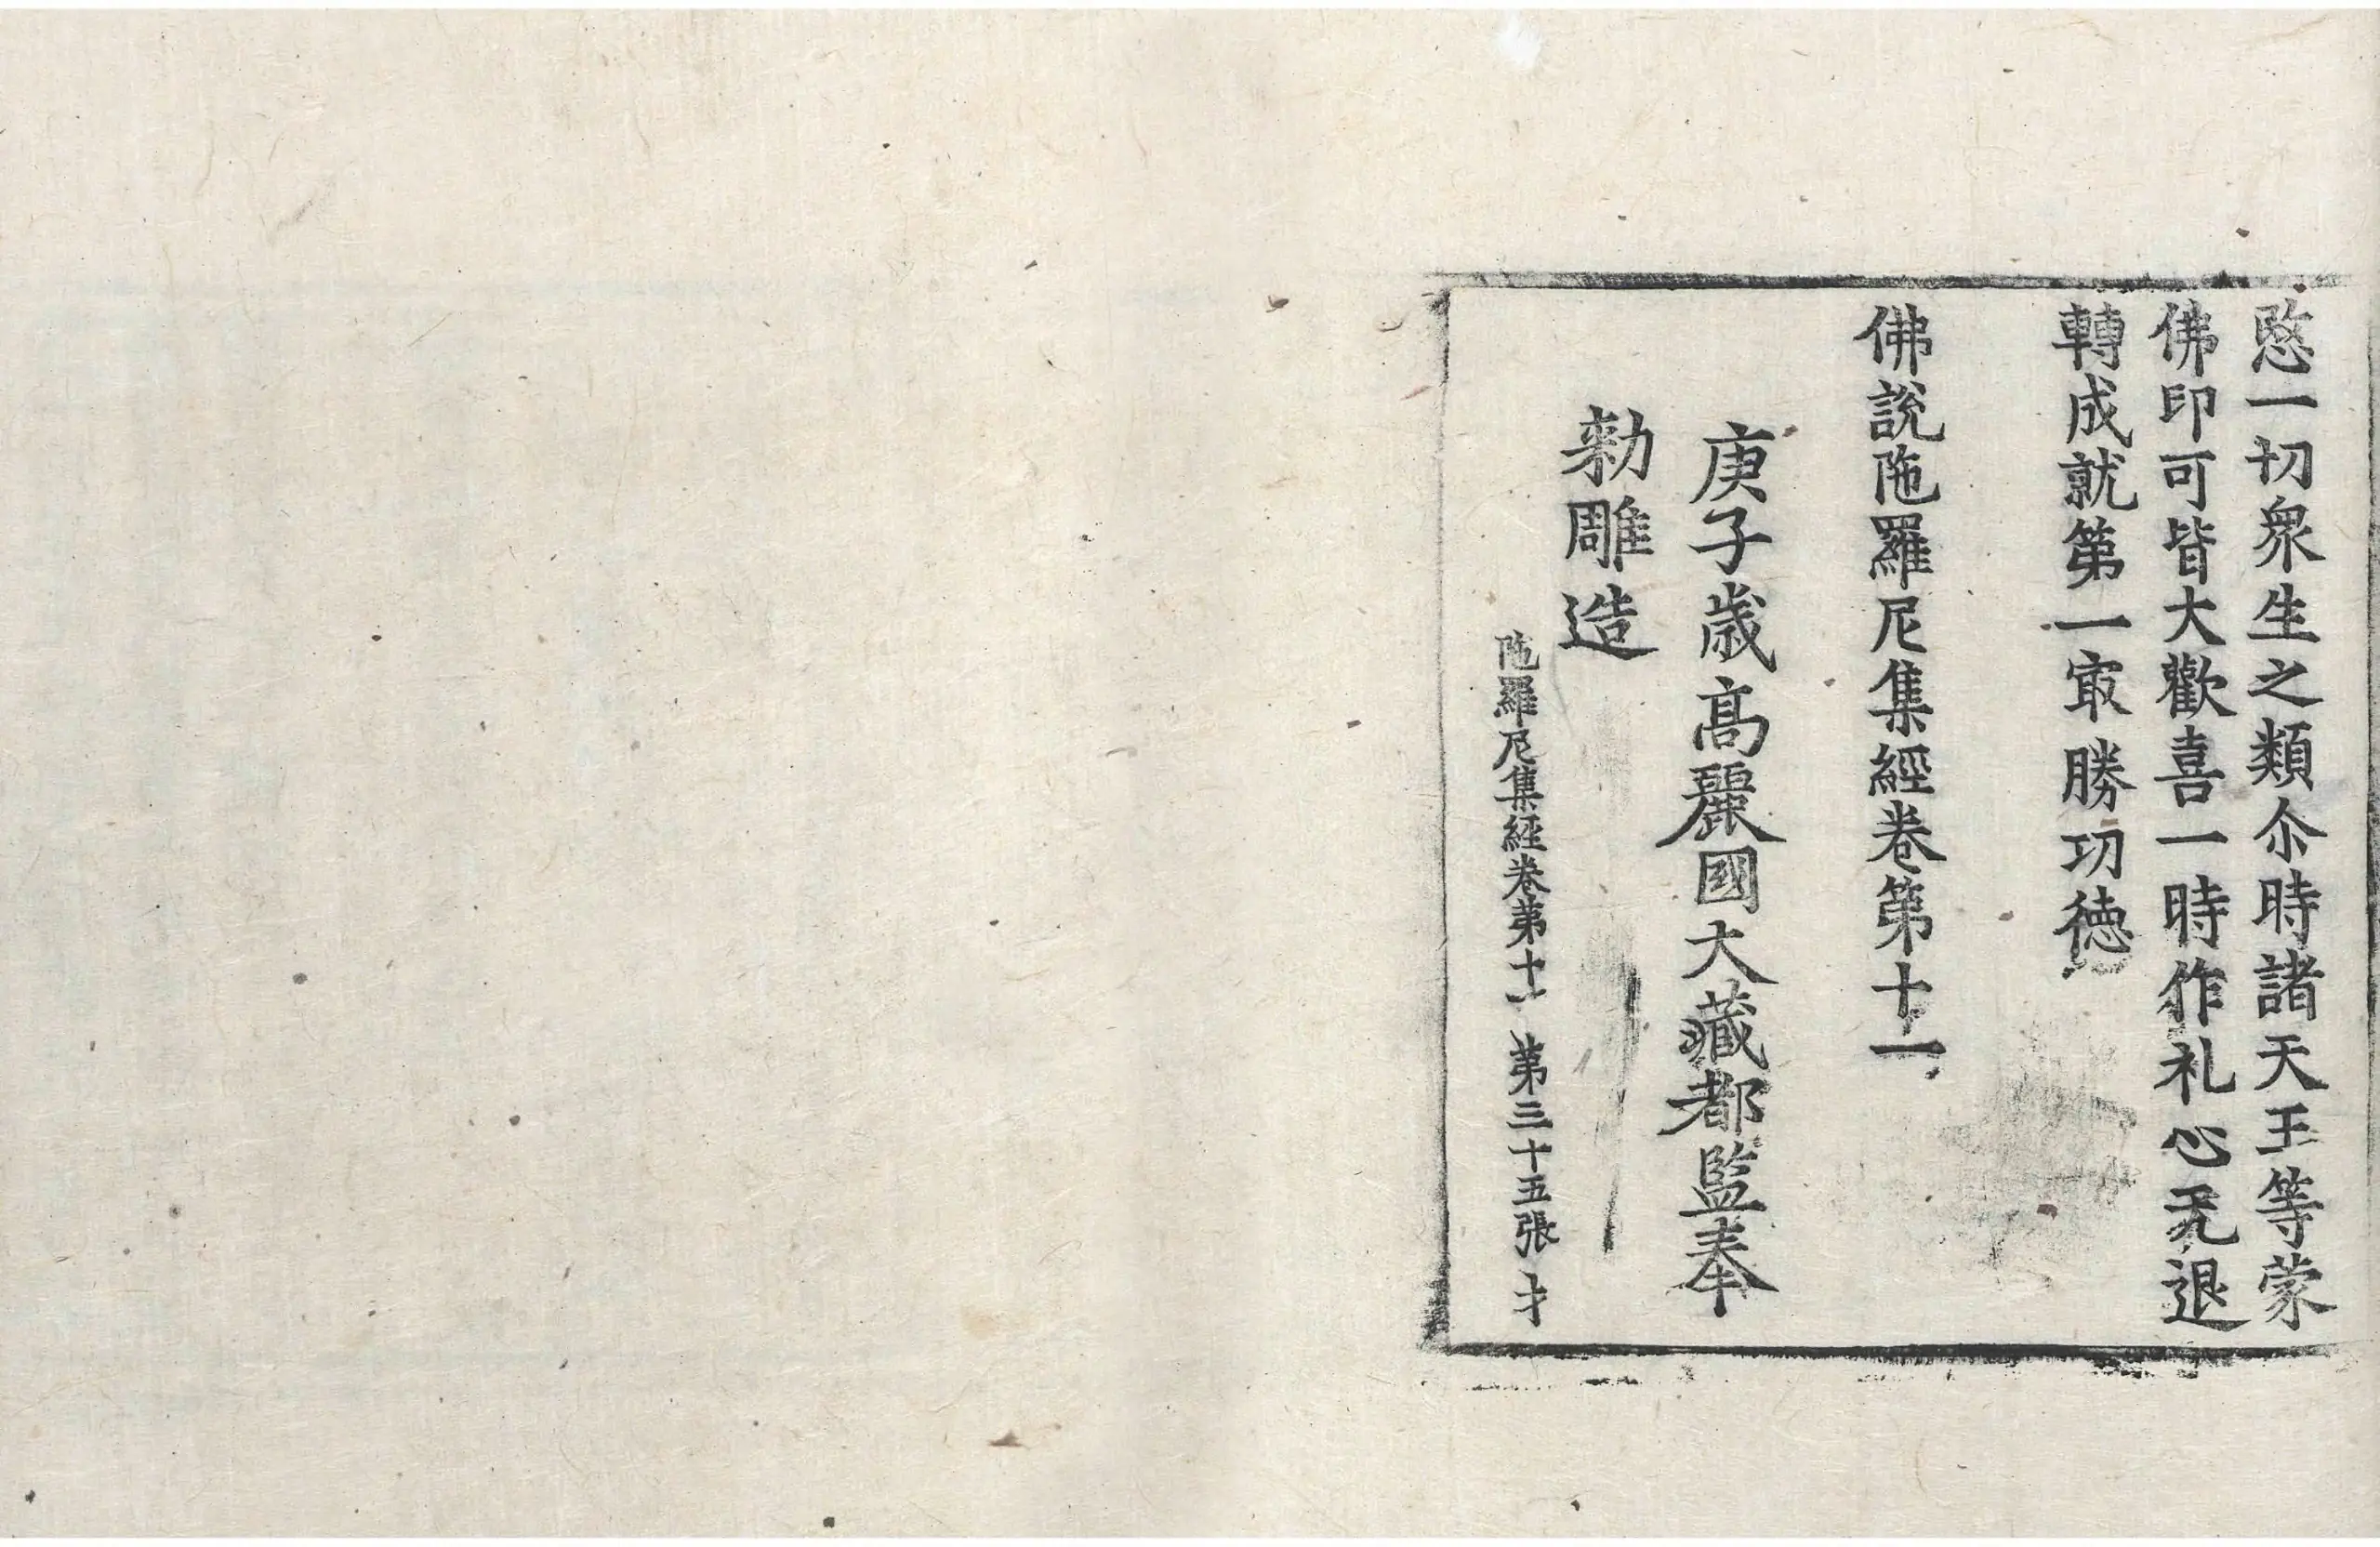 愍一切衆生之類尒時諸天王等蒙
佛印可皆大歡喜一時作礼心无退
轉成就第一㝡勝功徳
佛說陁羅尼集經卷第十一
庚子歲高麗國大藏都監奉
勑雕造
陁羅尼集經卷第十一 第三十五張 才